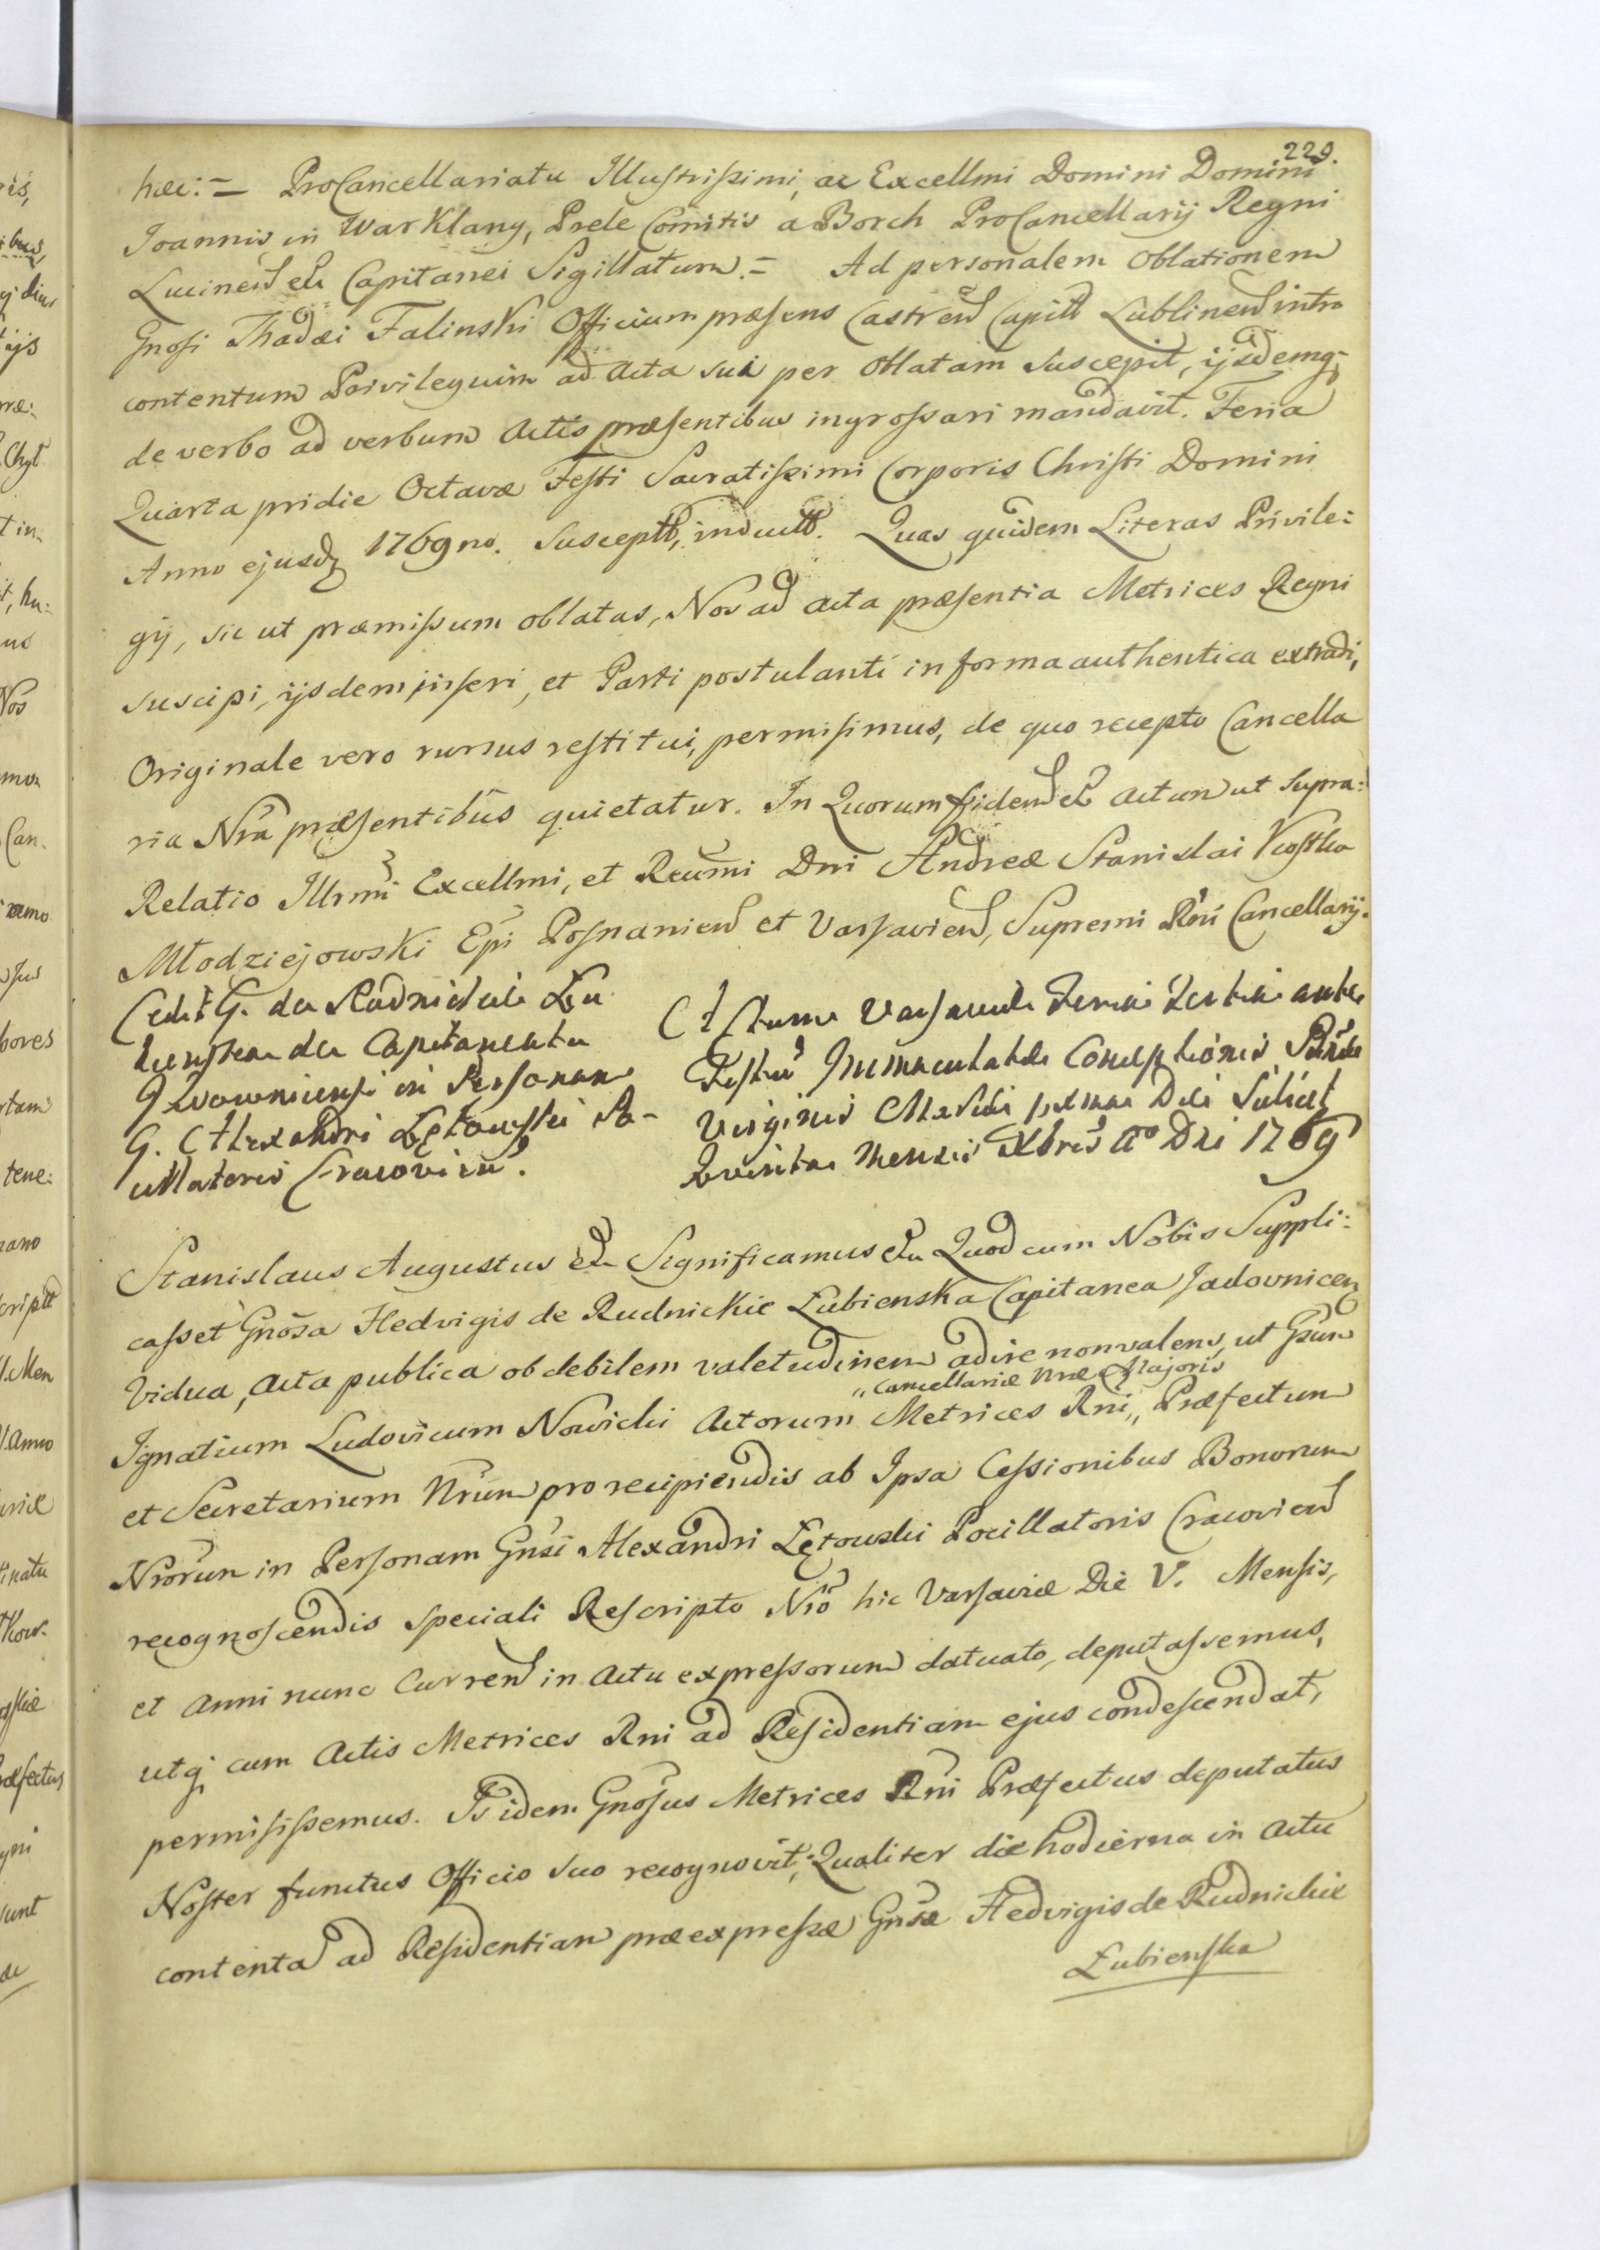 229.
hæc: = ProCancellariatu Illustrissimi, ac Excellmi Domini Domini
Joannis in Warklany, Prele Comitis a Borch ProCancellarij Regni
Lucinen etc Capitanei Sigillatum. = Ad personalem Oblationem
Gnosi Thadæi Falinski Officium præsens Castren Capitt Lublinen intro
contentum Privilegium ad Acta sua per Oblatam suscepit, ijsdemq;
de verbo ad verbum Actis præsentibus ingrossari mandavit. Feria
Quarta pridie Octavæ Festi Sacratissimi Corporis Christi Domini
Anno ejusd 1769no. Susceptt, inductt. Quas quidem Literas Privile:
gij, sic ut præmissum oblatas, Nos ad Acta præsentia Metrices Regni
suscipi, ijsdem inseri, et Parti postulanti in forma authentica extradi,
Originale vero rursus restitui, permisimus, de quo recepto Cancella
ria Nra præsentibus quietatur. In Quorum fidem etc Actum ut supra:
Relatio Illrmi Excellmi, et Reumi Dni Andreæ Stanislai Kostka
Młodziejowski Epi Posnanien et Varsavien, Supremi Rni Cancellarij.
Cedit G. de Rudnickie Łu
bienska de Capitaneatu
in Personam
G. Alexandri Łętowski Po-
cillatoris Cracovien.
Actum Varsaviæ Feria Tertia ante
Festum Immaculatæ Conceptionis
Virginis Mariæ Die Scilicet
Quinta Mensis Xbris Ao Dni 1769
Stanislaus Augustus etc Significamus etc Quod cum Nobis Suppli:
casset Gnosa Hedvigis de Rudnickie Łubienska Capitanea Jadovnicen
Vidua, Acta publica ob debilem valetudinem adire non valens, ut Gsum
„Cancellariæ Nræ Majoris
Ignatium Ludovicum Nowicki Actorum Metrices Rni„ Præfectum
et Secretarium Nrum pro recipiendis ab Ipsa Cessionibus Bonorum
Nrorum in Personam Gnsi Alexandri Łętowski Pocillatoris Cracovien
recognoscendis speciali Rescripto Nro hic Varsaviæ Die V. Mensis,
et Anni nunc Curren in Actu expressorum datuato, deputassemus,
utq; cum Actis Metrices Rni ad Residentiam ejus condescendat,
permisissemus. Is idem Gnosus Metrices Rni Præfectus deputatus
Noster functus Officio suo recognovit; Qualiter die hodierna in Actu
contenta ad Residentiam præexpressæ Gnsæ Hedvigis de Rudnickie
Łubienska